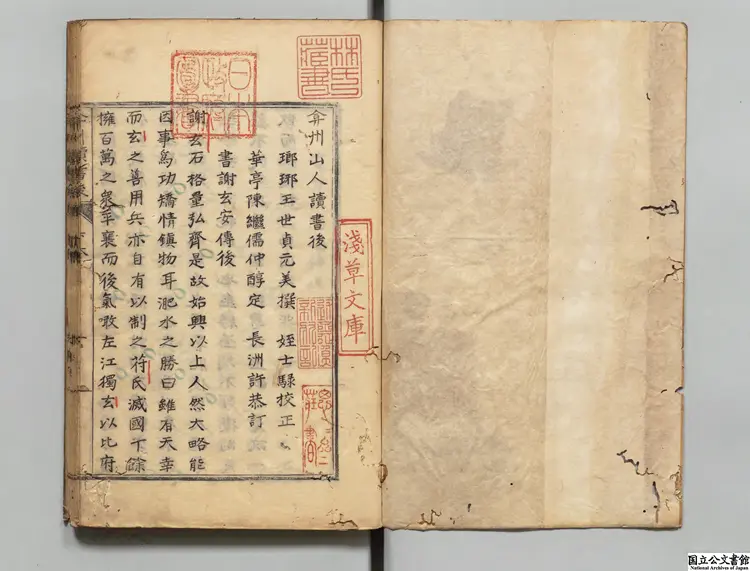 弇州山人讀書後
瑯琊王世貞元美撰 姪士騄挍正
華亭陳繼儒仲醇定 長洲許恭訂
書謝玄安傳後
謝玄石格量弘齊是故始興以上人然大略能
因事為功矯情鎮物耳淝水之勝曰雖有天幸
而玄之善用兵亦自有以制之苻氏滅國十餘
擁百萬之衆
襄而後氣敢左江獨玄以比府
林氏藏書
日本政府圖書
淺草文庫
国立公文書館
National Archives of Japan